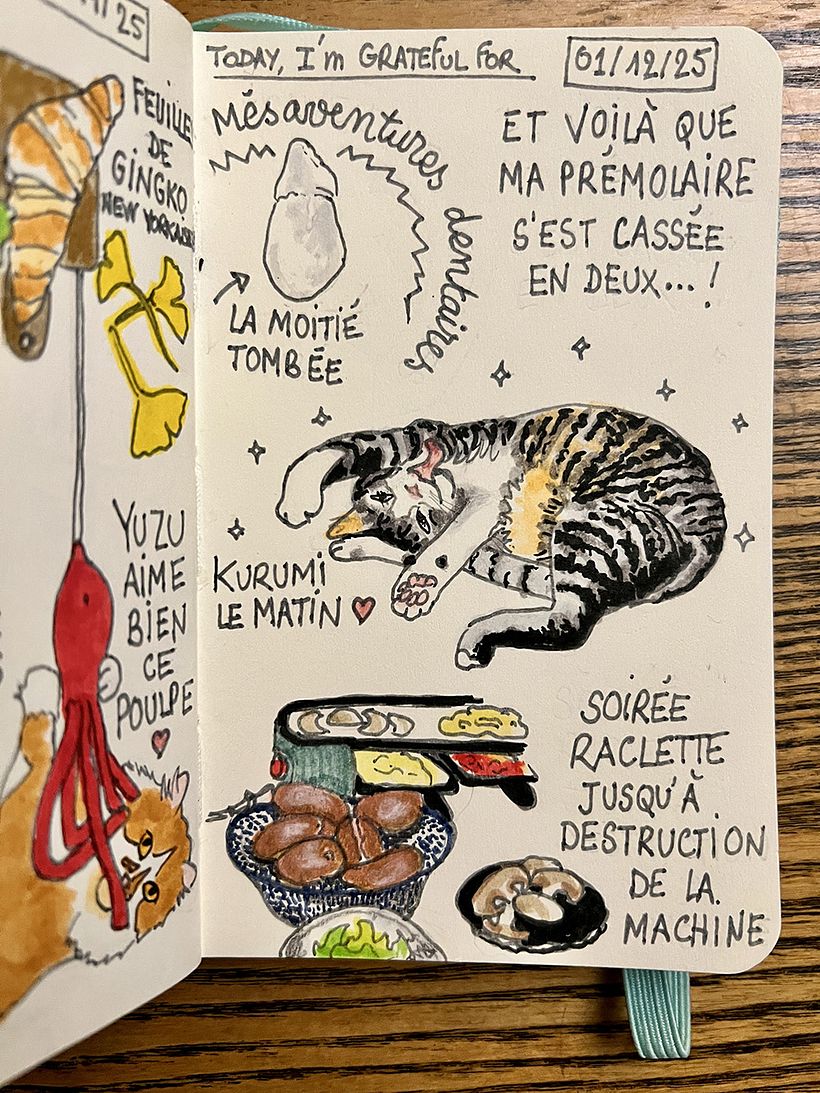 /25
FEUILLE
DE
GINGKO
NEW YORKAISE
YUZU
AIME
BIEN
CE
POULPE
TODAY, I'm GRATEFUL FOR
01/12/25
Mésaventures dentaires
LA MOITIÉ
TOMBÉE
ET VOILÀ QUE
MA PRÉMOLAIRE
S'EST CASSÉE
EN DEUX...!
KURUMI
LE MATIN
SOIRÉE
RACLETTE
JUSQU'À
DESTRUCTION
DE LA
MACHINE